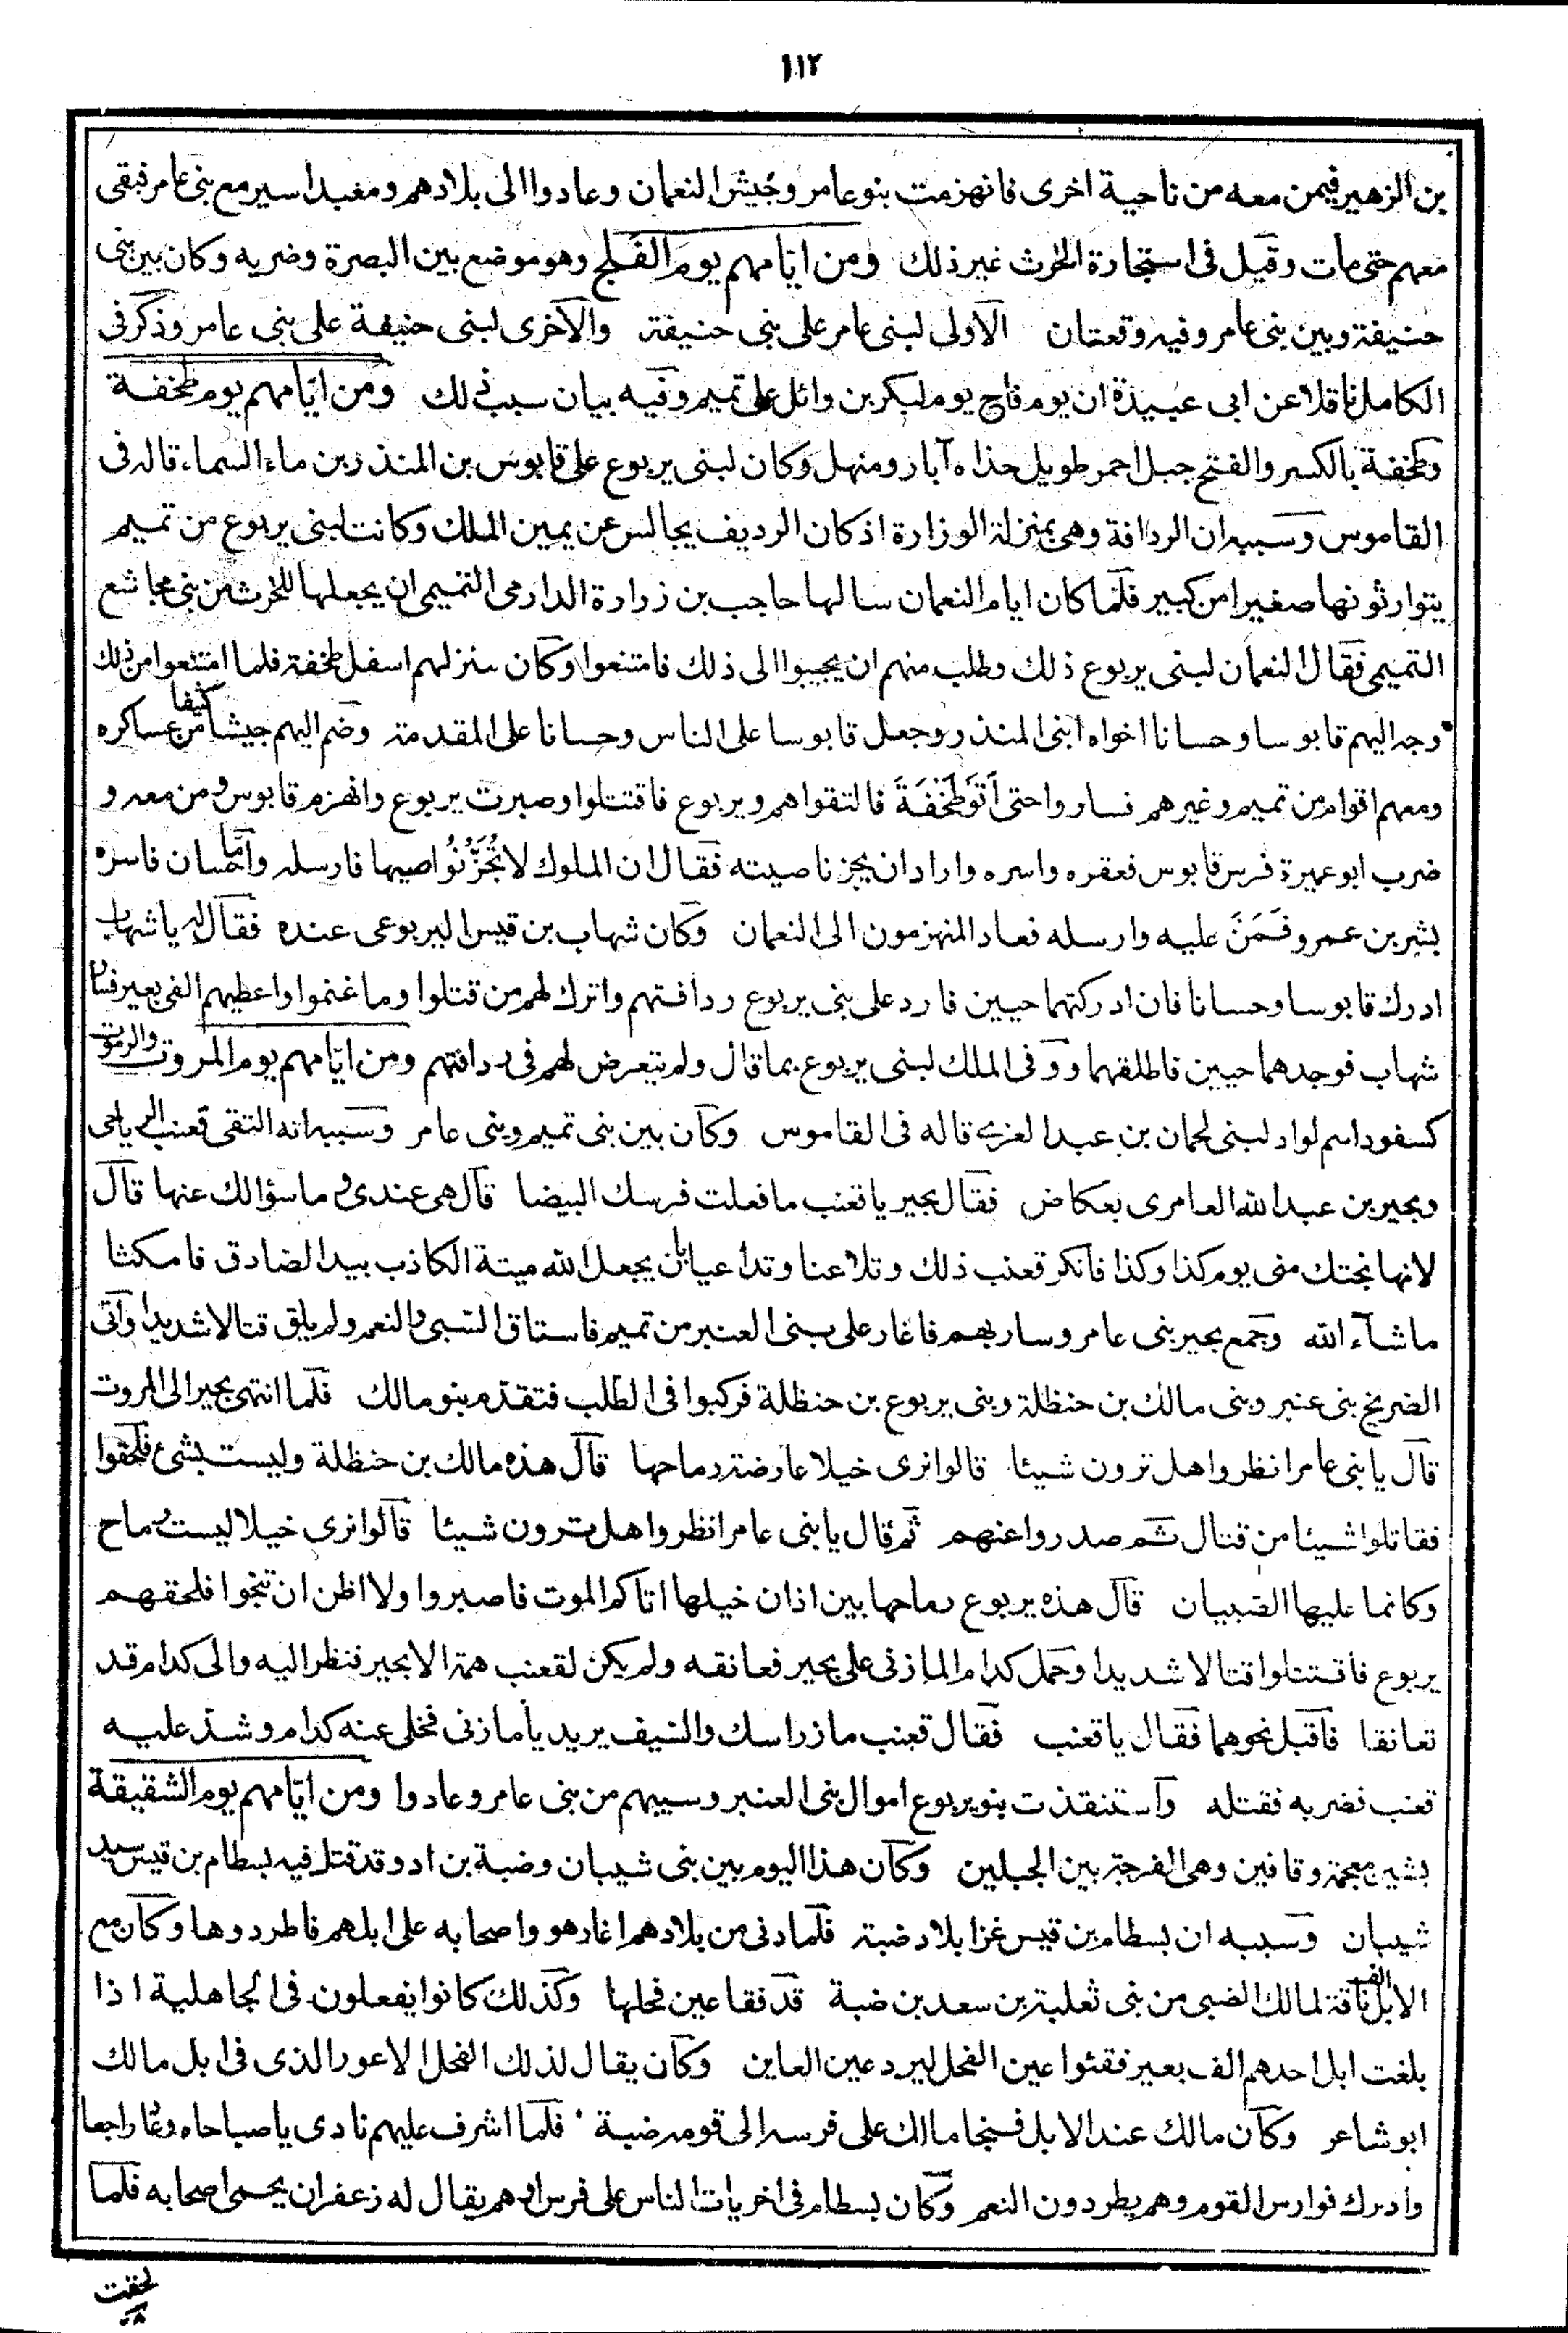 ١١٢
بن الزهير فيمن معه من ناحية اخرى فانهزمت بنو عامر وجيش النعمان وعادوا الى بلادهم ومعبد اسير مع بنى عامر فبقى
معهم حتى مات وقيل فى استجارة الحرث غير ذلك ومن ايامهم يوم الفلج وهو موضع بين البصرة وضريه وكان بين بنى
حنيفة وبين بنى عامر وفيه وقعتان الاولى لبنى عامر على بنى حنيفة والاخرى لبنى حنيفة على بنى عامر وذكر فى
الكامل ناقلا عن ابى عبيدة ان يوم فلج يوم لبكر بن وائل على تميم وفيه بيان سبب ذلك ومن ايامهم يوم طخفة
وطخفة بالكسر والفتح جبل احمر طويل حذاه آبار ومنهل وكان لبنى يربوع على قابوس بن المنذر بن ماء السماء قاله فى
القاموس وسببه ان الردافة وهى بمنزلة الوزارة اذ كان الرديف يجالس عن يمين الملك وكانت لبنى يربوع من تميم
يتوارثونها صغيرا من كبير فلما كان ايام النعمان سالها حاجب بن زرارة الدارمى التميمى ان يجعلها للحرث من بنى مجاشع
التميمى فقال النعمان لبنى يربوع ذلك وطلب منهم ان يجيبوا الى ذلك فامتنعوا وكان منزلهم اسفل طخفة فلما امتنعوا من ذلك
وجه اليهم قابوسا وحسانا اخواه ابنى المنذر وجعل قابوسا على الناس وحسانا على المقدمة وضم اليهم جيشا كثيفا من عساكره
ومعهم اقوام من تميم وغيرهم فساروا حتى اَتَو طَخْفَةَ فالتقوا هم ويربوع فاقتتلوا وصبرت يربوع وانهزم قابوس ومن معه و
ضرب ابو عميرة فرس قابوس فعقره واسره واراد ان يجز ناصيته فقال ان الملوك لا تُجَزُّ نواصيها فارسله واما حسان فاسره
بشر بن عمرو فَمَنَّ عليه وارسله فعاد المنهزمون الى النعمان وكان شهاب بن قيس اليربوعى عنده فقال له يا شهاب
ادرك قابوسا وحسانا فان ادركتهما حيين فارد على بنى يربوع ردافتهم واترك لهم من قتلوا وما غنموا واعطيهم الفى بعير فسار
شهاب فوجدهما حيين فاطلقهما ووفى الملك لبنى يربوع بما قال ولم يتعرض لهم فى ردافتهم ومن ايامهم يوم المروت والرموت
كسفود اسم لواد لبنى لحمان بن عبد العزى قاله فى القاموس وكان بين بنى تميم وبنى عامر وسببه انه التقى قعنب الرياحى
وبحير بن عبد الله العامرى بعكاض فقال بحير يا قعنب ما فعلت فرسك البيضا قال هى عندى وما سؤالك عنها قال
لانها نجتك منى يوم كذا وكذا فانكر قعنب ذلك وتلاعنا وتداعيا بان يجعل الله ميتة الكاذب بيد الصادق فامكثا
ما شآء الله وجمع بحير بنى عامر وسار بهم فاغار على بنى العنبر من تميم فاستاق السبى والنعم ولم يلق قتالا شديدا واتى
الضريخ بنى عنبر وبنى مالك بن حنظلة وبنى يربوع بن حنظلة فركبوا فى الطلب فتقدم بنو مالك فلما انتهى بحير الى المروت
قال يا بنى عامر انظروا هل ترون شيئا قالوا نرى خيلا عارضة رماحها قال هذه مالك بن حنظلة وليست بشئ فلحقوا
فقاتلوا شيئا من قتال ثم صدروا عنهم ثم قال يا بنى عامر انظروا هل ترون شيئا قالوا نرى خيلا ليست رماح
وكانما عليها الصبيان قال هذه يربوع رماحها بين اذان خيلها اتاكم الموت فاصبروا ولا اظن ان تنجوا فلحقهم
يربوع فاقتتلوا قتالا شديدا وحمل كدام المازنى على بحير فعانقه ولم يكن لقعنب همة الا بحير فنظر اليه والى كدام قد
تعانقا فاقبل نحوهما فقال يا قعنب فقال قعنب ماز راسك والسيف يريد يا مازنى فخلى عنه كدام وشد عليه
قعنب فضربه فقتله واستنقذت بنو يربوع اموال بنى العنبر وسبيهم من بنى عامر وعادوا ومن ايامهم يوم الشقيقة
بشين معجمة وقافين وهى الفرجة بين الجبلين وكان هذا اليوم بين بنى شيبان وضبة بن اد وقد قتل فيه بسطام بن قيس سيد
شيبان وسببه ان بسطام بن قيس غزا بلاد ضبة فلما دنى من بلادهم اغار هو واصحابه على ابلهم فاطردوها وكان مع
الابل الف ناقة لمالك الضبى من بنى ثعلبة بن سعد بن ضبة قد فقا عين فحلها وكذلك كانوا يفعلون فى الجاهلية اذا
بلغت ابل احدهم الف بعير فقئوا عين الفحل ليرد عين العاين وكان يقال لذلك الفحل الاعور الذى فى ابل مالك
ابو شاعر وكان مالك عند الابل فنجا مالك على فرسه الى قومه ضبة فلما اشرف عليهم نادى يا صباحاه وعاد راجعا
وادرك فوارس القوم وهم يطردون النعم وكان بسطام فى اخريات الناس على فرس ادهم يقال له زعفران يحمى اصحابه فلما
لحقت